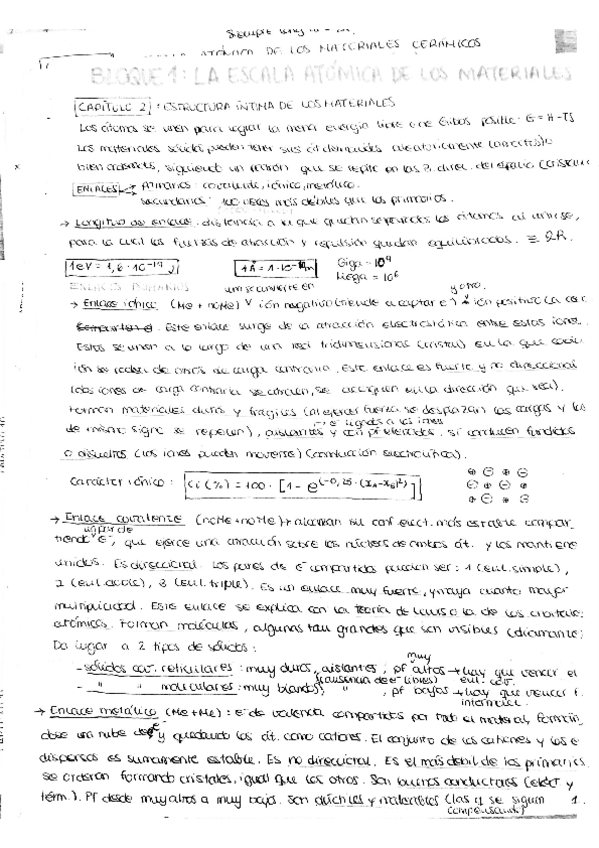 Siempre
ATÓMICA DE LOS MATERIALES CERÁMICOS
BLOQUE 1: LA ESCALA ATÓMICA DE LOS MATERIALES
CAPÍTULO 2: ESTRUCTURA ÍNTIMA DE LOS MATERIALES
Los átomos se unen para lograr la menor energía libre de Gibbs posible. G = H-TS
Los materiales sólidos pueden tener sus át. distribuidos aleatoriamente (amorfos) o
bien ordenados, siguiendo un patrón que se repite en las 3 direc. del espacio
ENLACES primarios: covalente, iónico, metálico.
secundarios: 100 veces más débiles que los primarios.
→ Longitud de enlace: distancia a la que quedan separados los átomos al unirse,
para la cual las fuerzas de atracción y repulsión quedan equilibradas. ≡ 2R.
1eV = 1,6·10⁻¹⁹ J 1Å = 1·10⁻¹⁰ m Giga = 10⁹
Mega = 10⁶
ENLACES PRIMARIOS uno se convierte en y otro.
→ Enlace iónico (Me + noMe) ión negativo (tiende a captar e⁻) ión positivo
Este enlace surge de la atracción electrostática entre estos iones.
Estos se unen a lo largo de una red tridimensional (cristal) en la que cada
ión se rodea de otros de carga contraria. Este enlace es fuerte y no direccional
(dos iones de carga contraria se atraen, se acerquen en la dirección que sea).
Forman materiales duros y frágiles (al ejercer fuerza se desplazan las cargas y las
de mismo signo se repelen), aislantes y con pf elevados. Sí conducen fundidos
→ e⁻ ligados a los iones
o disueltos (los iones pueden moverse) (conducción electrolítica).
Carácter iónico: Ci (%) = 100 · [1 - e^(-0,25·(xA-xB)²)]
→ Enlace covalente (noMe + noMe) → alcanzan su conf. elect. más estable compar-
un par de
tiendo e⁻, que ejerce una atracción sobre los núcleos de ambos át. y los mantiene
unidos. Es direccional. Los pares de e⁻ compartidos pueden ser: 1 (enl. simple),
2 (enl. doble), 3 (enl. triple). Es un enlace muy fuerte, y mayor cuanto mayor
multiplicidad. Este enlace se explica con la teoría de Lewis o la de los orbitales
atómicos. Forman moléculas, algunas tan grandes que son visibles (diamante)
Da lugar a 2 tipos de sólidos:
muy
- sólidos cov. reticulares: muy duros, aislantes, pf altos → hay que vencer el
(ausencia de e⁻ libres) enl. cov.
- " " moleculares: muy blandos, " , pf bajos → hay que vencer f.
intermolec.
→ Enlace metálico (Me + Me): e⁻ de valencia compartidos por todo el material, formán-
dose una nube de e⁻ y quedando los át. como cationes. El conjunto de los cationes y los e⁻
dispersos es sumamente estable. Es no direccional. Es el más débil de los primarios.
se ordenan formando cristales, igual que los otros. Son buenos conductores (eléct y
térm.). Pf desde muy altos a muy bajos. Son dúctiles y maleables (las q se siguen 1.
compensando)